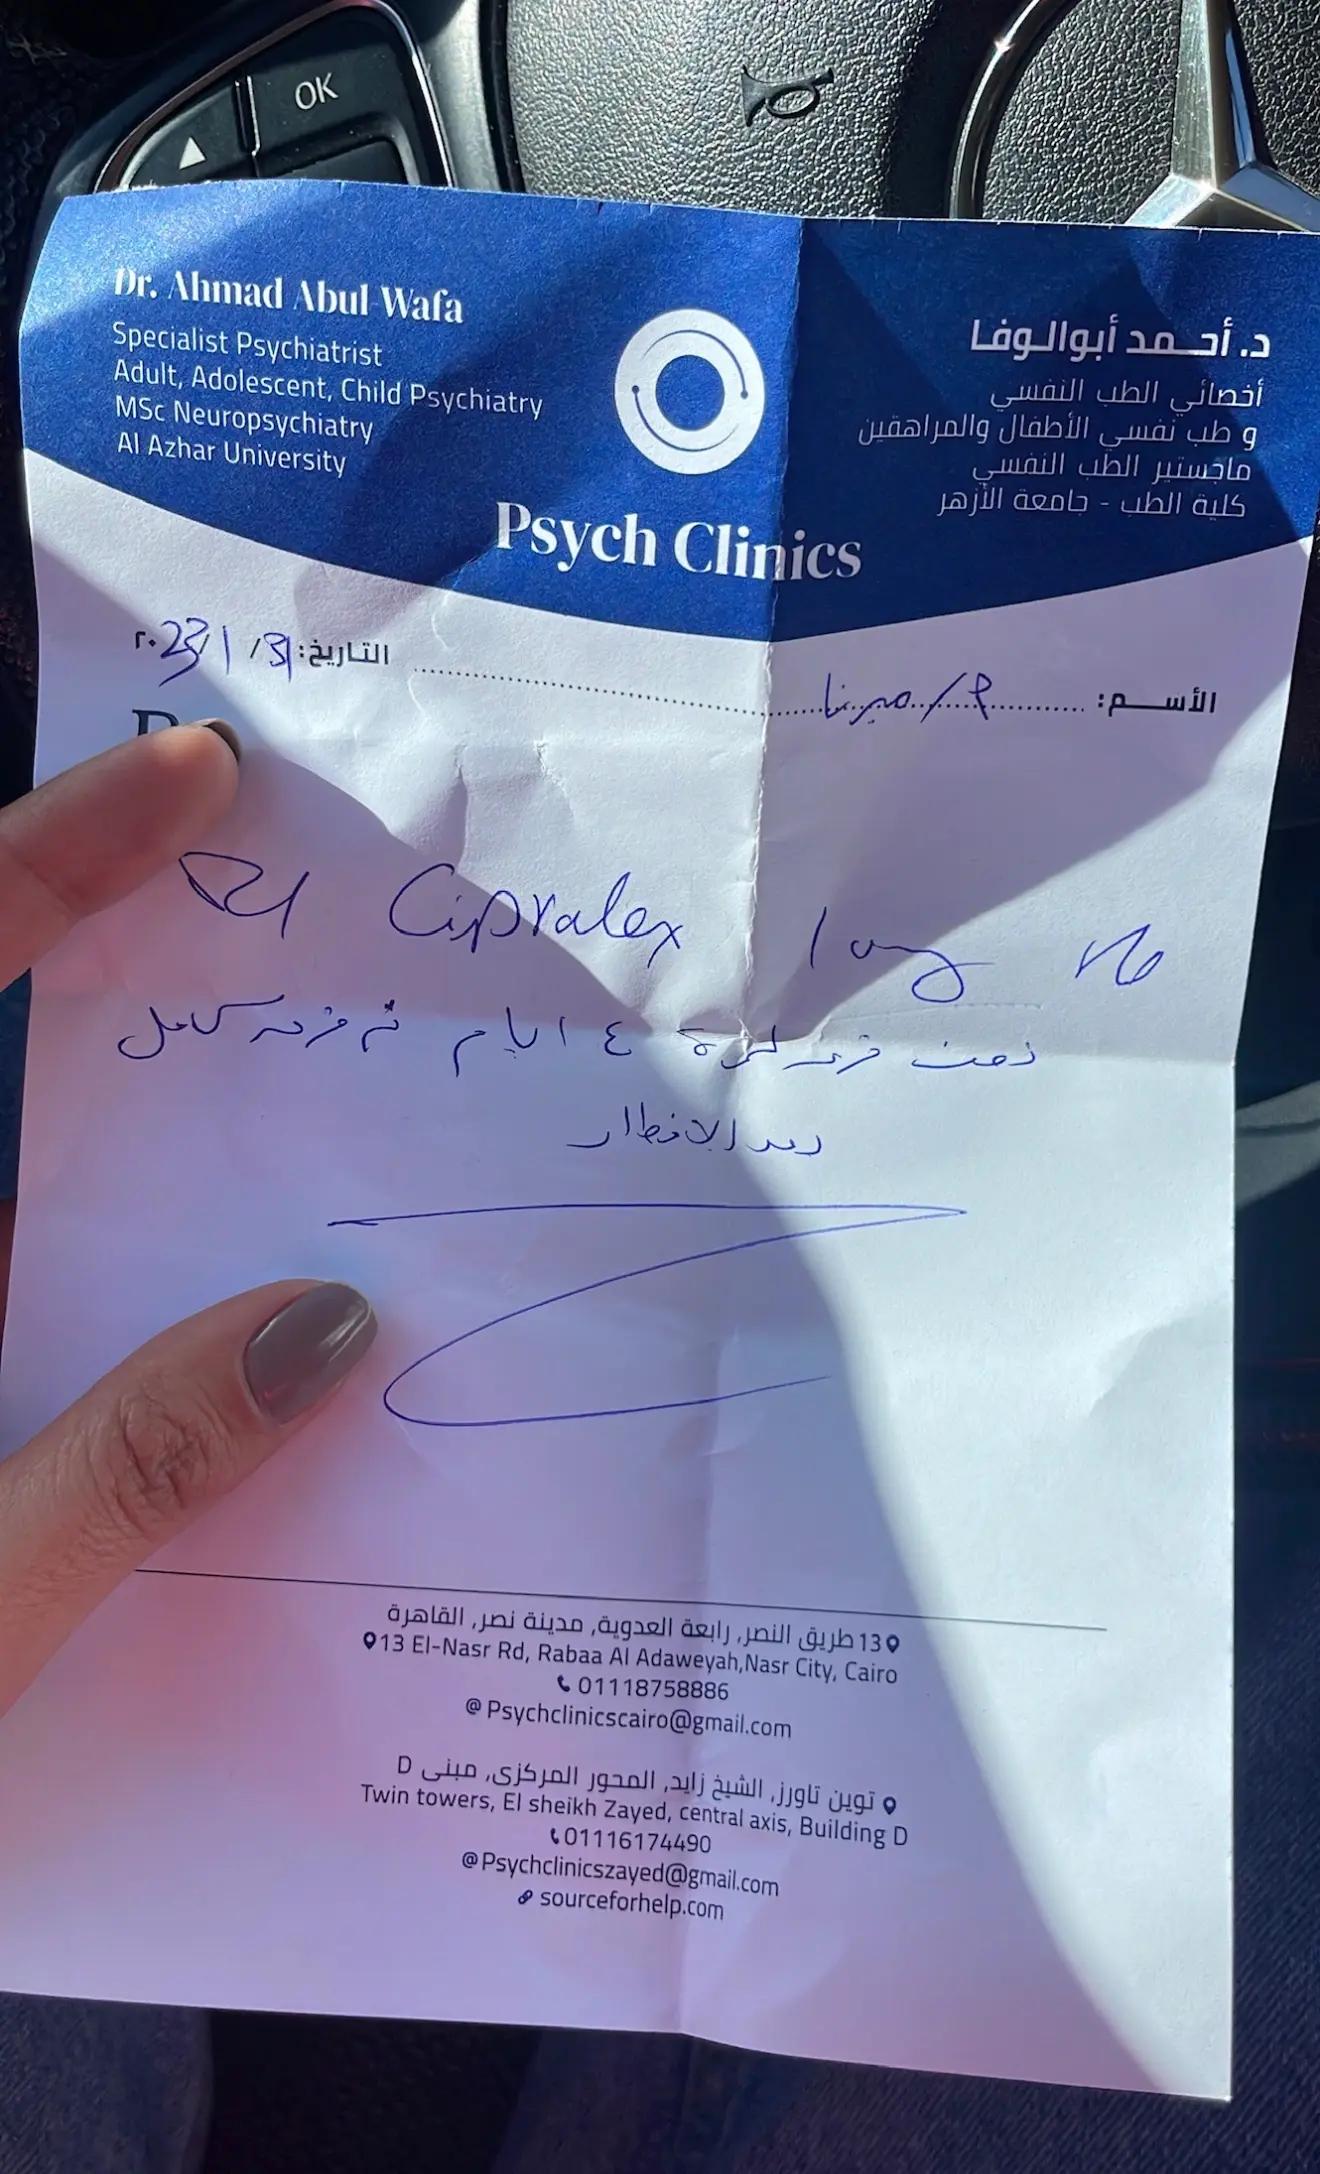 OK
Dr. Ahmad Abul Wafa
Specialist Psychiatrist
Adult, Adolescent, Child Psychiatry
MSc Neuropsychiatry
Al Azhar University
د. أحمد أبوالوفا
أخصائي الطب النفسي
و طب نفسي الأطفال والمراهقين
ماجستير الطب النفسي
كلية الطب - جامعة الأزهر
Psych Clinics
الأسم: ميرنا
التاريخ: 31/1/2023
R
Cipralex 10mg
نصف قرص لمدة ٤ ايام ثم قرص كامل
بعد الافطار
13 طريق النصر, رابعة العدوية, مدينة نصر, القاهرة
13 El-Nasr Rd, Rabaa Al Adaweyah,Nasr City, Cairo
01118758886
@ Psychclinicscairo@gmail.com
توين تاورز, الشيخ زايد, المحور المركزى, مبنى D
Twin towers, El sheikh Zayed, central axis, Building D
01116174490
@ Psychclinicszayed@gmail.com
sourceforhelp.com